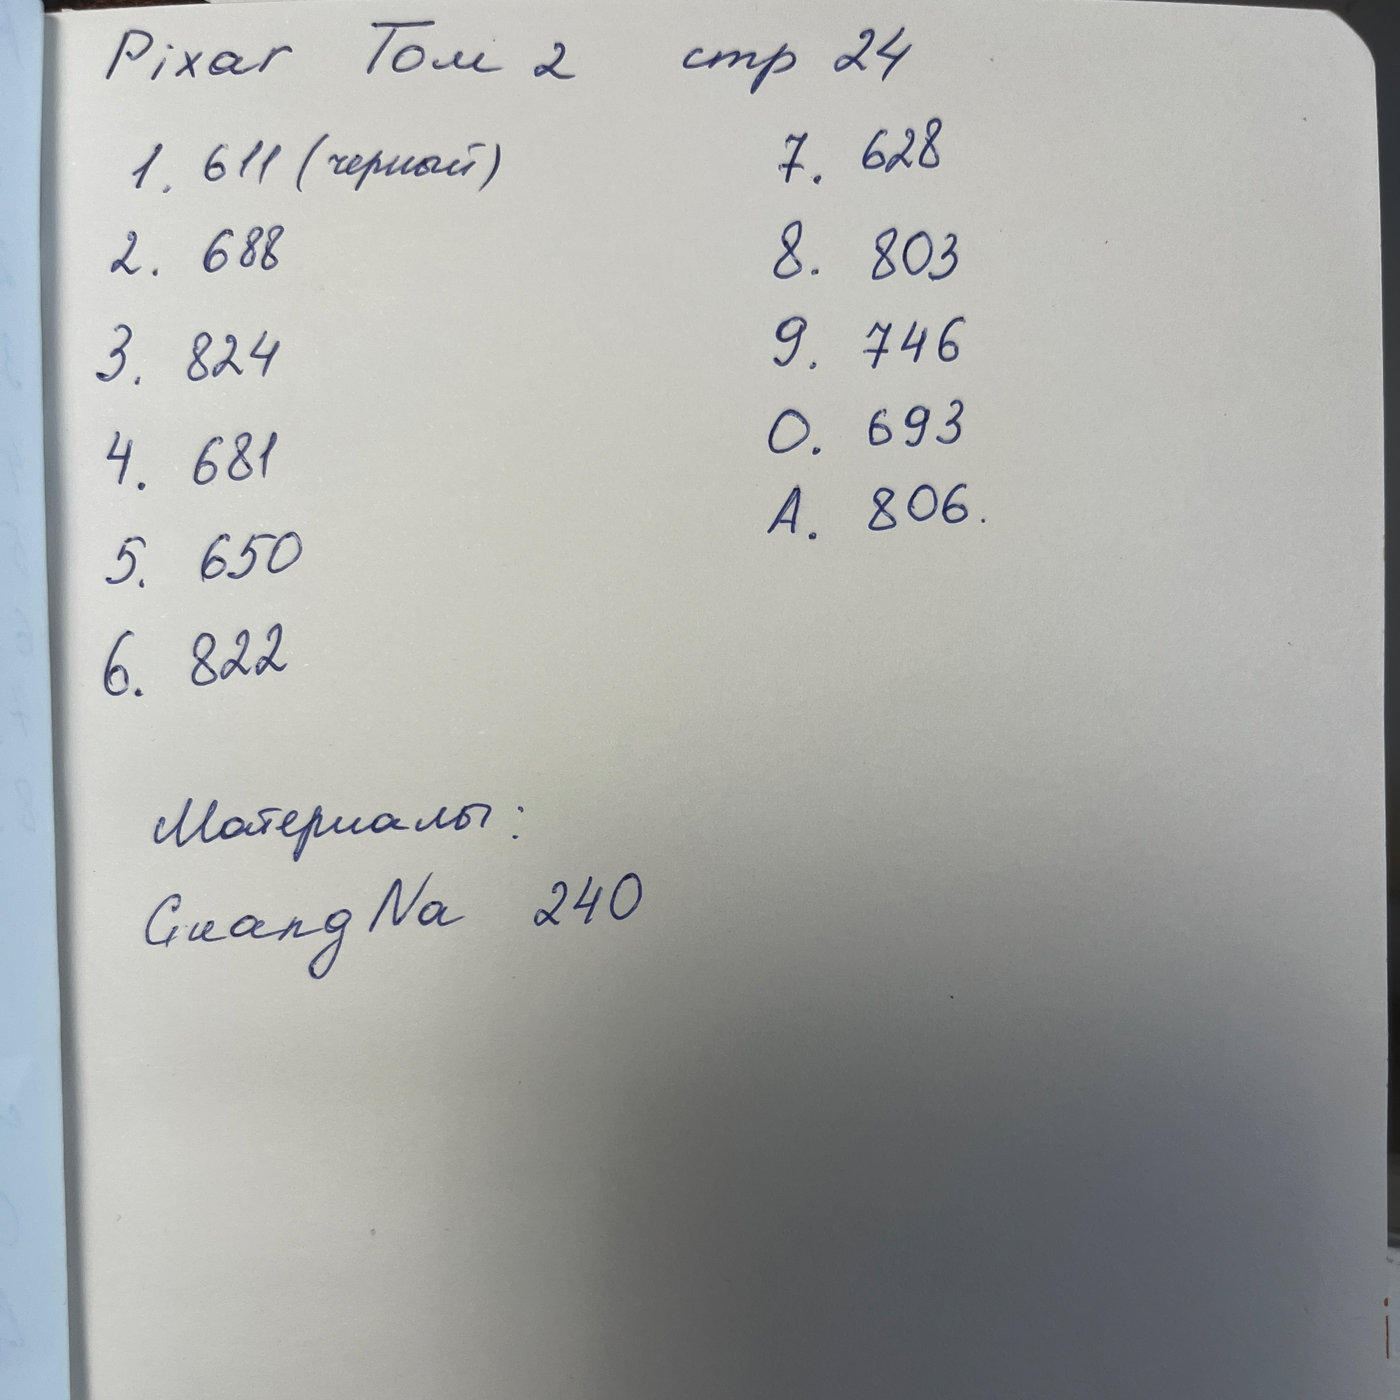 Pixar Том 2 стр 24
1. 611 (черный)
2. 688
3. 824
4. 681
5. 650
6. 822
7. 628
8. 803
9. 746
0. 693
A. 806.
Материалы:
Guang Na 240